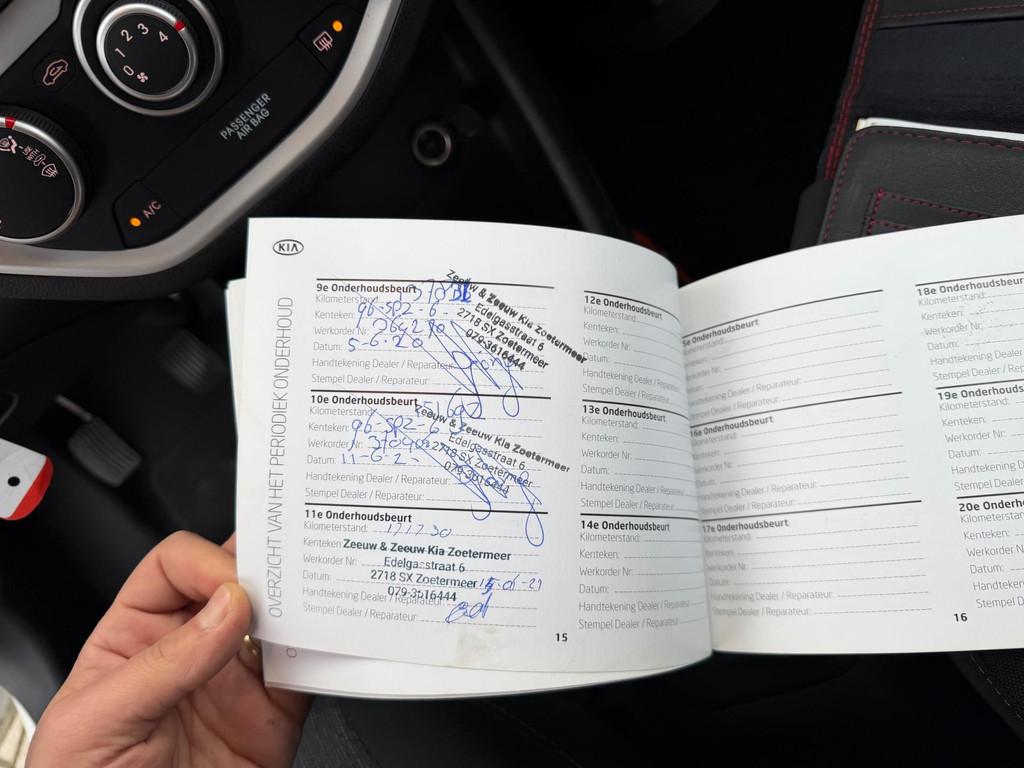 0 1 2 3 4
PASSENGER
AIR BAG
A/C
KIA
OVERZICHT VAN HET PERIODIEK ONDERHOUD
9e Onderhoudsbeurt
Kilometerstand:
Kenteken: 96-SPZ-6
Werkorder Nr:
Datum: 5-6-20
Handtekening Dealer / Reparateur:
Stempel Dealer / Reparateur:
Zeeuw & Zeeuw Kia Zoetermeer
Edelgasstraat 6
2718 SX Zoetermeer
079-3616444
10e Onderhoudsbeurt
Kilometerstand:
Kenteken: 96-SPZ-6
Werkorder Nr:
Datum: 11-6-2
Handtekening Dealer / Reparateur:
Stempel Dealer / Reparateur:
Zeeuw & Zeeuw Kia Zoetermeer
Edelgasstraat 6
2718 SX Zoetermeer
079-3616444
11e Onderhoudsbeurt
Kilometerstand: 171730
Kenteken:
Werkorder Nr:
Datum:
Handtekening Dealer / Reparateur:
Stempel Dealer / Reparateur:
Zeeuw & Zeeuw Kia Zoetermeer
Edelgasstraat 6
2718 SX Zoetermeer
079-3616444
12e Onderhoudsbeurt
Kilometerstand:
Kenteken:
Werkorder Nr:
Datum:
Handtekening Dealer / Reparateur:
Stempel Dealer / Reparateur:
13e Onderhoudsbeurt
Kilometerstand:
Kenteken:
Werkorder Nr:
Datum:
Handtekening Dealer / Reparateur:
Stempel Dealer / Reparateur:
14e Onderhoudsbeurt
Kilometerstand:
Kenteken:
Werkorder Nr:
Datum:
Handtekening Dealer / Reparateur:
Stempel Dealer / Reparateur:
15
5e Onderhoudsbeurt
Kilometerstand:
Kenteken:
Werkorder Nr:
Datum:
Handtekening Dealer / Reparateur:
Stempel Dealer / Reparateur:
16e Onderhoudsbeurt
Kilometerstand:
Kenteken:
Werkorder Nr:
Datum:
Handtekening Dealer / Reparateur:
Stempel Dealer / Reparateur:
17e Onderhoudsbeurt
Kilometerstand:
Kenteken:
Werkorder Nr:
Datum:
Handtekening Dealer / Reparateur:
Stempel Dealer / Reparateur:
18e Onderhoudsbeurt
Kilometerstand:
Kenteken:
Werkorder Nr:
Datum:
Handtekening Dealer
Stempel Dealer / Rep
19e Onderhouds
Kilometerstand:
Kenteken:
Werkorder Nr:
Datum:
Handtekening Dealer
Stempel Dealer / R
20e Onderho
Kilometerstand:
Kenteken:
Werkorder Nr:
Datum:
Handtekening
Stempel Dealer
16